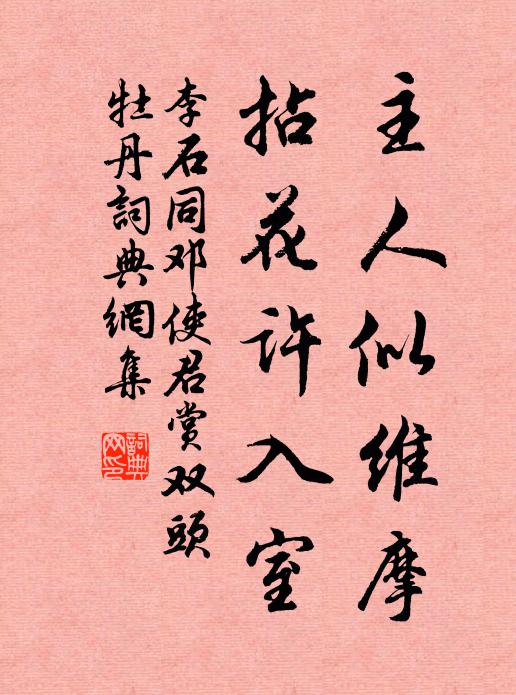 主人似维摩
拈花许入室
李石同邓使君赏双头
牡丹詞典網集
詞典網印